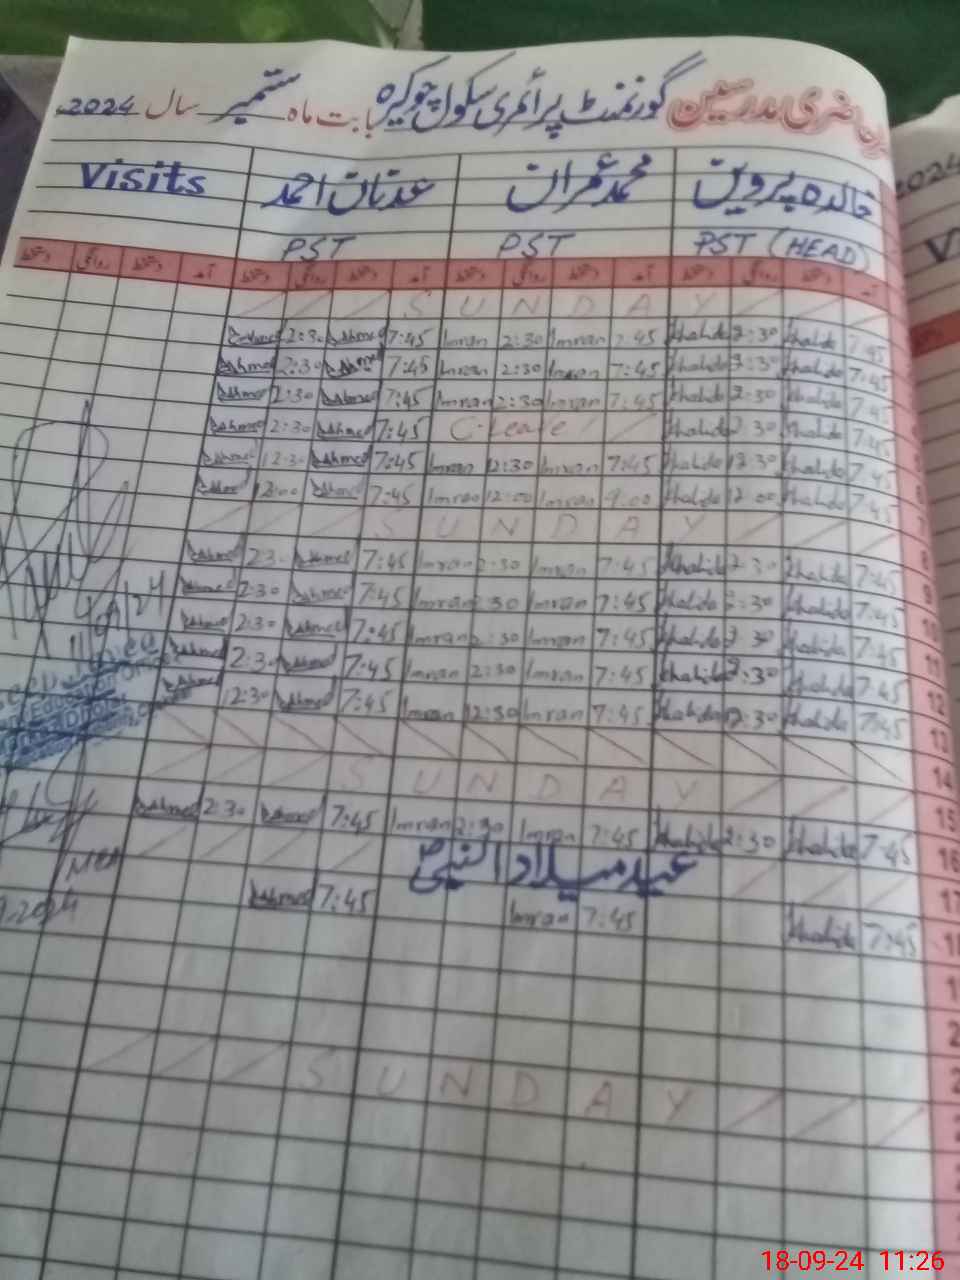 حاضری مدرسین گورنمنٹ پرائمری سکول چوکیرہ بابت ماہ ستمبر سال 2024
خالدہ پروین محمد عمران عدنان احمد Visits
PST (HEAD) PST PST
آمد دستخط روانگی دستخط آمد دستخط روانگی دستخط آمد دستخط روانگی دستخط آمد دستخط روانگی دستخط
S U N D A Y
2:30 Ahmed 7:45 Imran 2:30 Imran 7:45 Khalida 2:30 Khalida 7:45
Ahmed 2:30 Ahmed 7:45 Imran 2:30 Imran 7:45 Khalida 2:30 Khalida 7:45
Ahmed 2:30 Ahmed 7:45 Imran 2:30 Imran 7:45 Khalida 2:30 Khalida 7:45
Ahmed 2:30 Ahmed 7:45 C-Leave Khalida 2:30 Khalida 7:45
Ahmed 12:30 Ahmed 7:45 Imran 12:30 Imran 7:45 Khalida 12:30 Khalida 7:45
Ahmed 12:00 Ahmed 7:45 Imran 12:00 Imran 9:00 Khalida 12:00 Khalida 7:45
S U N D A Y
Ahmed 2:30 Ahmed 7:45 Imran 2:30 Imran 7:45 Khalida 2:30 Khalida 7:45
Ahmed 2:30 Ahmed 7:45 Imran 2:30 Imran 7:45 Khalida 2:30 Khalida 7:45
Ahmed 2:30 Ahmed 7:45 Imran 2:30 Imran 7:45 Khalida 2:30 Khalida 7:45
Ahmed 2:30 Ahmed 7:45 Imran 2:30 Imran 7:45 Khalida 2:30 Khalida 7:45
Ahmed 12:30 Ahmed 7:45 Imran 12:30 Imran 7:45 Khalida 12:30 Khalida 7:45
S U N D A Y
Ahmed 2:30 Ahmed 7:45 Imran 2:30 Imran 7:45 Khalida 2:30 Khalida 7:45
عید میلاد النبیؐ
Ahmed 7:45 Imran 7:45 Khalida 7:45
S U N D A Y
Education
MEA
2024
2024
V
8
9
10
11
12
13
14
15
16
17
18-09-24 11:26